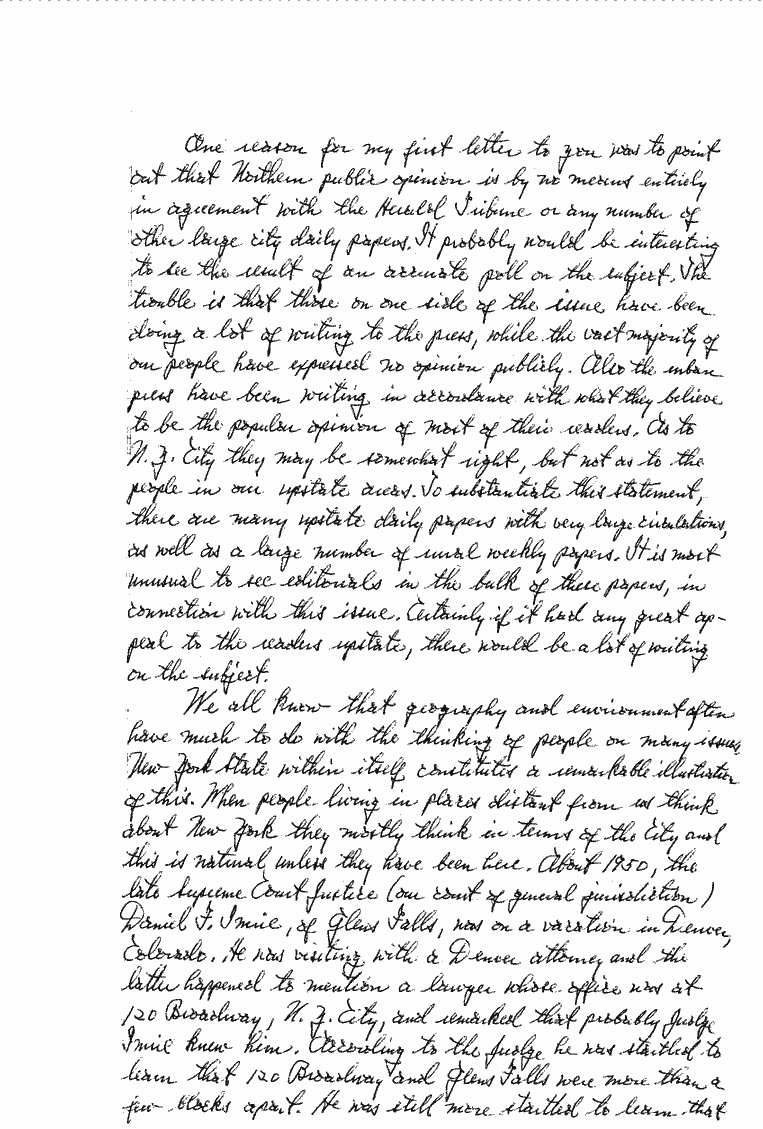 One reason for my first letter to you was to point
out that Northern public opinion is by no means entirely
in agreement with the Herald Tribune or any number of
other large city daily papers. It probably would be interesting
to see the result of an accurate poll on the subject. The
trouble is that those on one side of the issue have been
doing a lot of writing to the press, while the vast majority of
our people have expressed no opinion publicly. Also the urban
press have been writing in accordance with what they believe
to be the popular opinion of most of their readers. As to
N.Y. City they may be somewhat right, but not as to the
people in our upstate areas. To substantiate this statement,
there are many upstate daily papers with very large circulations,
as well as a large number of rural weekly papers. It is most
unusual to see editorials in the bulk of these papers, in
connection with this issue. Certainly if it had any great ap-
peal to the readers upstate, there would be a lot of writing
on the subject.
We all know that geography and environment often
have much to do with the thinking of people on many issues.
New York State within itself constitutes a remarkable illustration
of this. When people living in places distant from us think
about New York they mostly think in terms of the City and
this is natural unless they have been here. About 1950, the
late Supreme Court Justice (our court of general jurisdiction)
Daniel F. Imrie, of Glens Falls, was on a vacation in Denver,
Colorado. He was visiting with a Denver attorney and the
latter happened to mention a lawyer whose office was at
120 Broadway, N.Y. City, and remarked that probably Judge
Imrie knew him. According to the Judge he was startled to
learn that 120 Broadway and Glens Falls were more than a
few blocks apart. He was still more startled to learn that